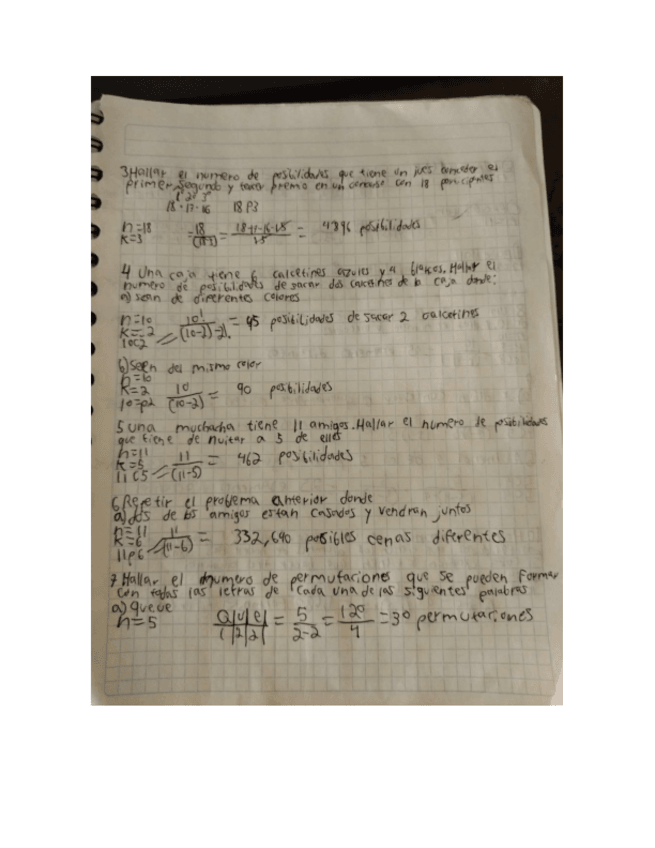 3 Hallar el numero de posibilidades que tiene un juez otorgar el
primer, segundo y tercer premio en un concurso con 18 participantes
1° 2° 3°
18 · 17 · 16 18 P3
n=18
K=3
4896 posibilidades
4 Una caja tiene 6 calcetines azules y 4 blancos. Hallar el
numero de posibilidades de sacar dos calcetines de la caja donde:
a) sean de diferentes colores
n=10
K=2
10C2 10! / (10-2)-2! = 45 posibilidades de sacar 2 calcetines
b) seen del mismo color
n=10
K=2 10 / (10-2) = 90 posibilidades
10=p2
5 una muchacha tiene 11 amigos. Hallar el numero de posibilidades
que tiene de invitar a 5 de ellos
n=11
K=5 11 / (11-5) = 462 posibilidades
11C5
6 Repetir el problema anterior donde
a) dos de los amigos estan casados y vendran juntos
n=11
K=6 11 / (11-6) = 332,640 posibles cenas diferentes
11p6
7 Hallar el numero de permutaciones que se pueden formar
con todas las letras de cada una de las siguientes palabras
a) queue
n=5 Q|U|E| / 1|2|2| = 5 / 2-2 = 120 / 4 = 30 permutaciones